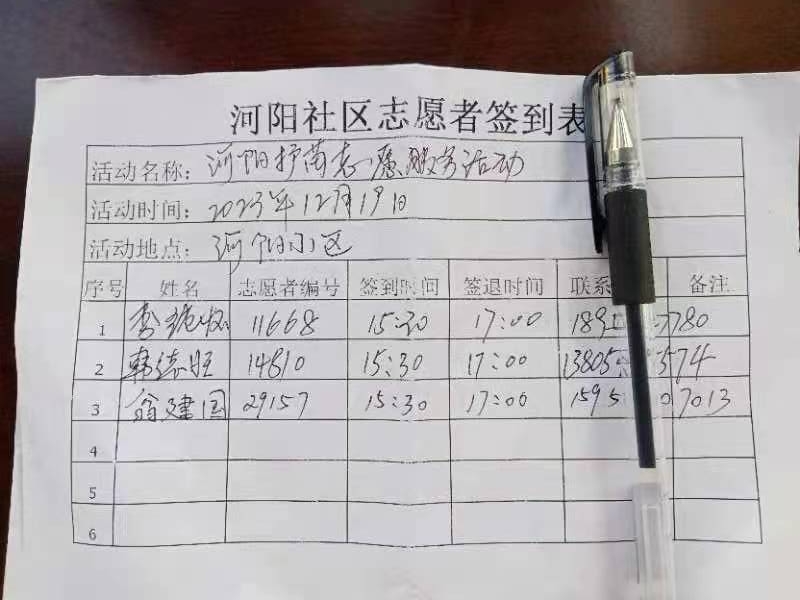 河阳社区志愿者签到表
活动名称：河阳护苗志愿服务活动
活动时间：2023年12月19日
活动地点：河阳小区
序号 姓名 志愿者编号 签到时间 签退时间 联系 备注
1 李 11668 15:30 17:00 189 7780
2 韩德旺 14810 15:30 17:00 13805 574
3 翁建国 29157 15:30 17:00 1595 07013
4
5
6